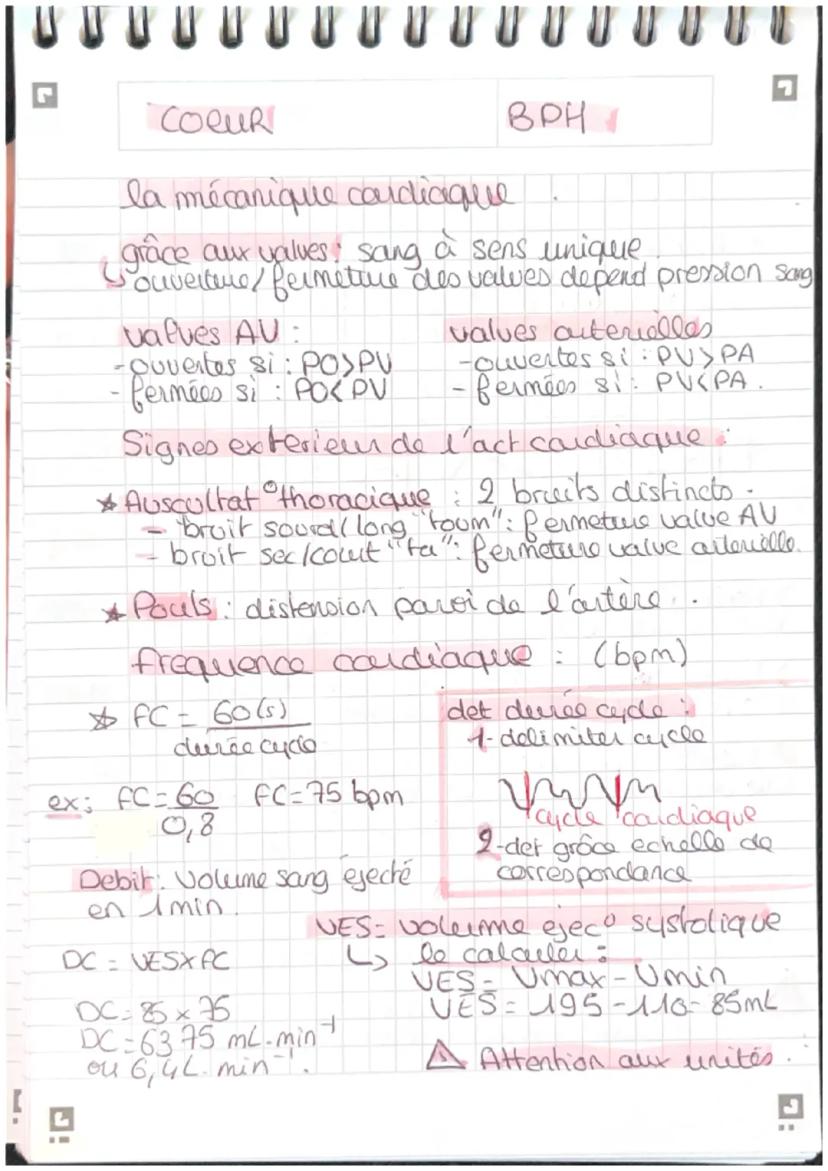 COEUR
BPH
la mécanique cardiaque.
grâce aux valves: sang à sens unique.
↳ ouverture/fermeture des valves depend pression sang
valves AV :
- ouvertes si : PO>PV
- fermées si : PO<PV
valves arterielles
- ouvertes si : PV>PA
- fermées si : PV<PA.
Signes exterieur de l'act cardiaque :
★ Auscultat° thoracique : 2 bruits distincts.
- bruit sourd/long "toum": fermeture valve AV
- bruit sec/court "ta": fermeture valve arterielle.
★ Pouls : distension paroi de l'artère.
frequence cardiaque : (bpm)
☆ FC = 60(s)
durée cycle
ex: FC=60 FC=75 bpm
0,8
det durée cycle :
1- delimiter cycle
cycle cardiaque
2-det grâce echelle de
correspondance
Debit: Volume sang éjecté
en 1min.
DC = VESXFC
DC=85 x 75
DC=6375 mL.min⁻¹
ou 6,4L.min⁻¹.
VES= volume ejec° systolique
↳ le calculer :
VES= Vmax-Vmin
VES= 195-110-85mL
⚠ Attention aux unités.